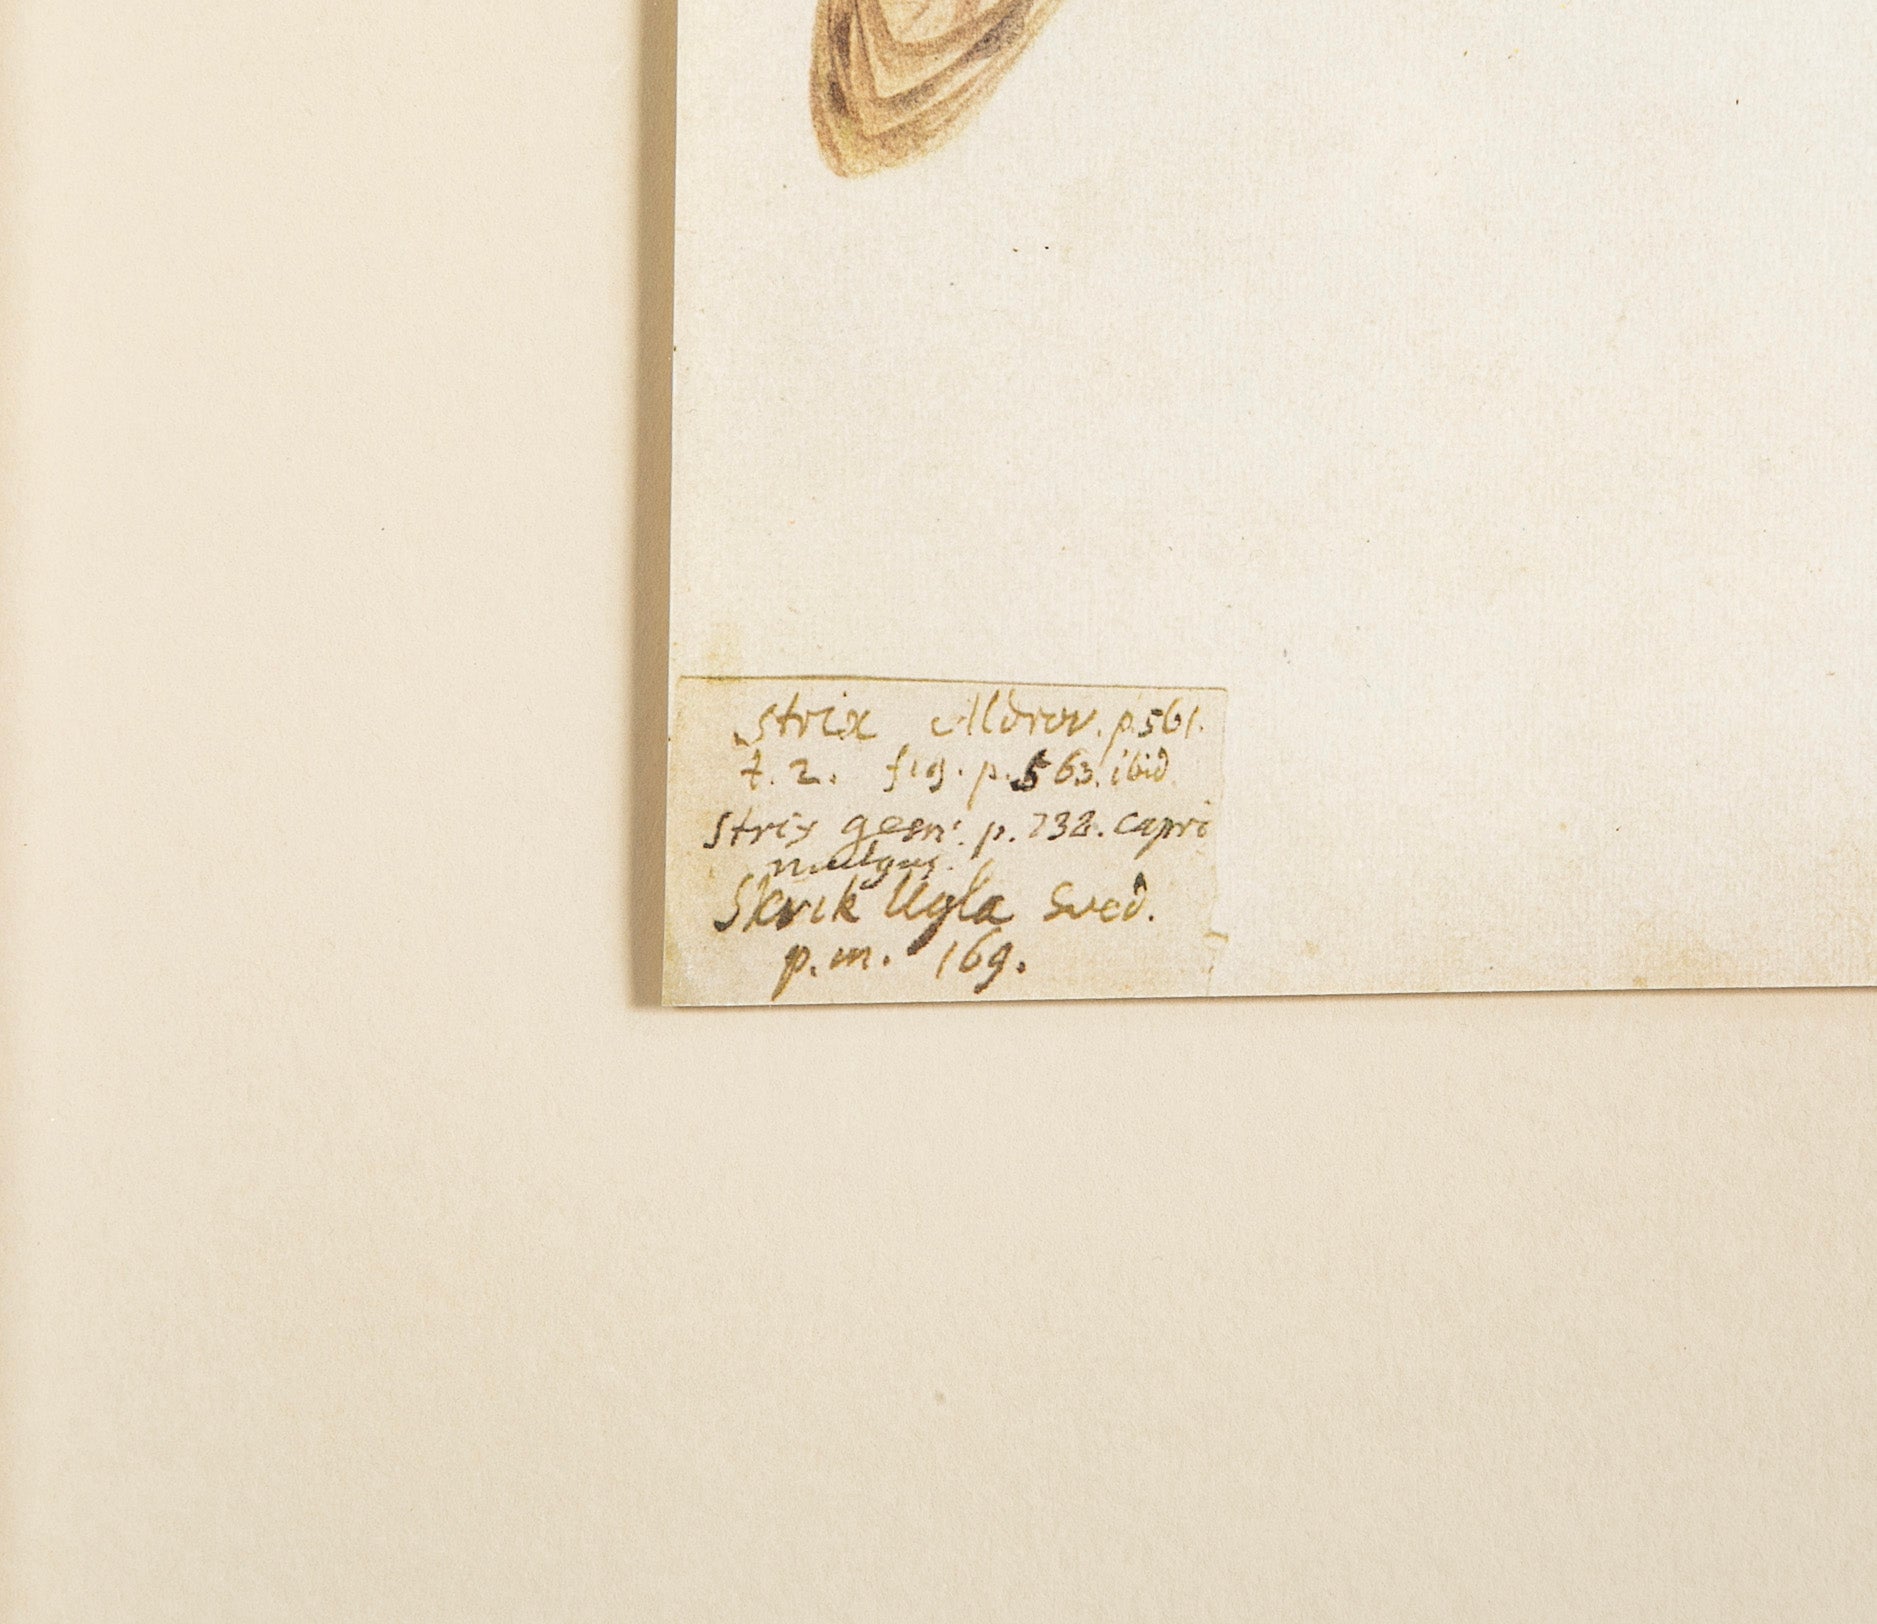 Strix Aldrov. p. 561.
t. 2. fig. p. 563. ibid
Strix gesn: p. 738. capri
mulgus.
Skrik Ugla Sved.
p. m. 169.